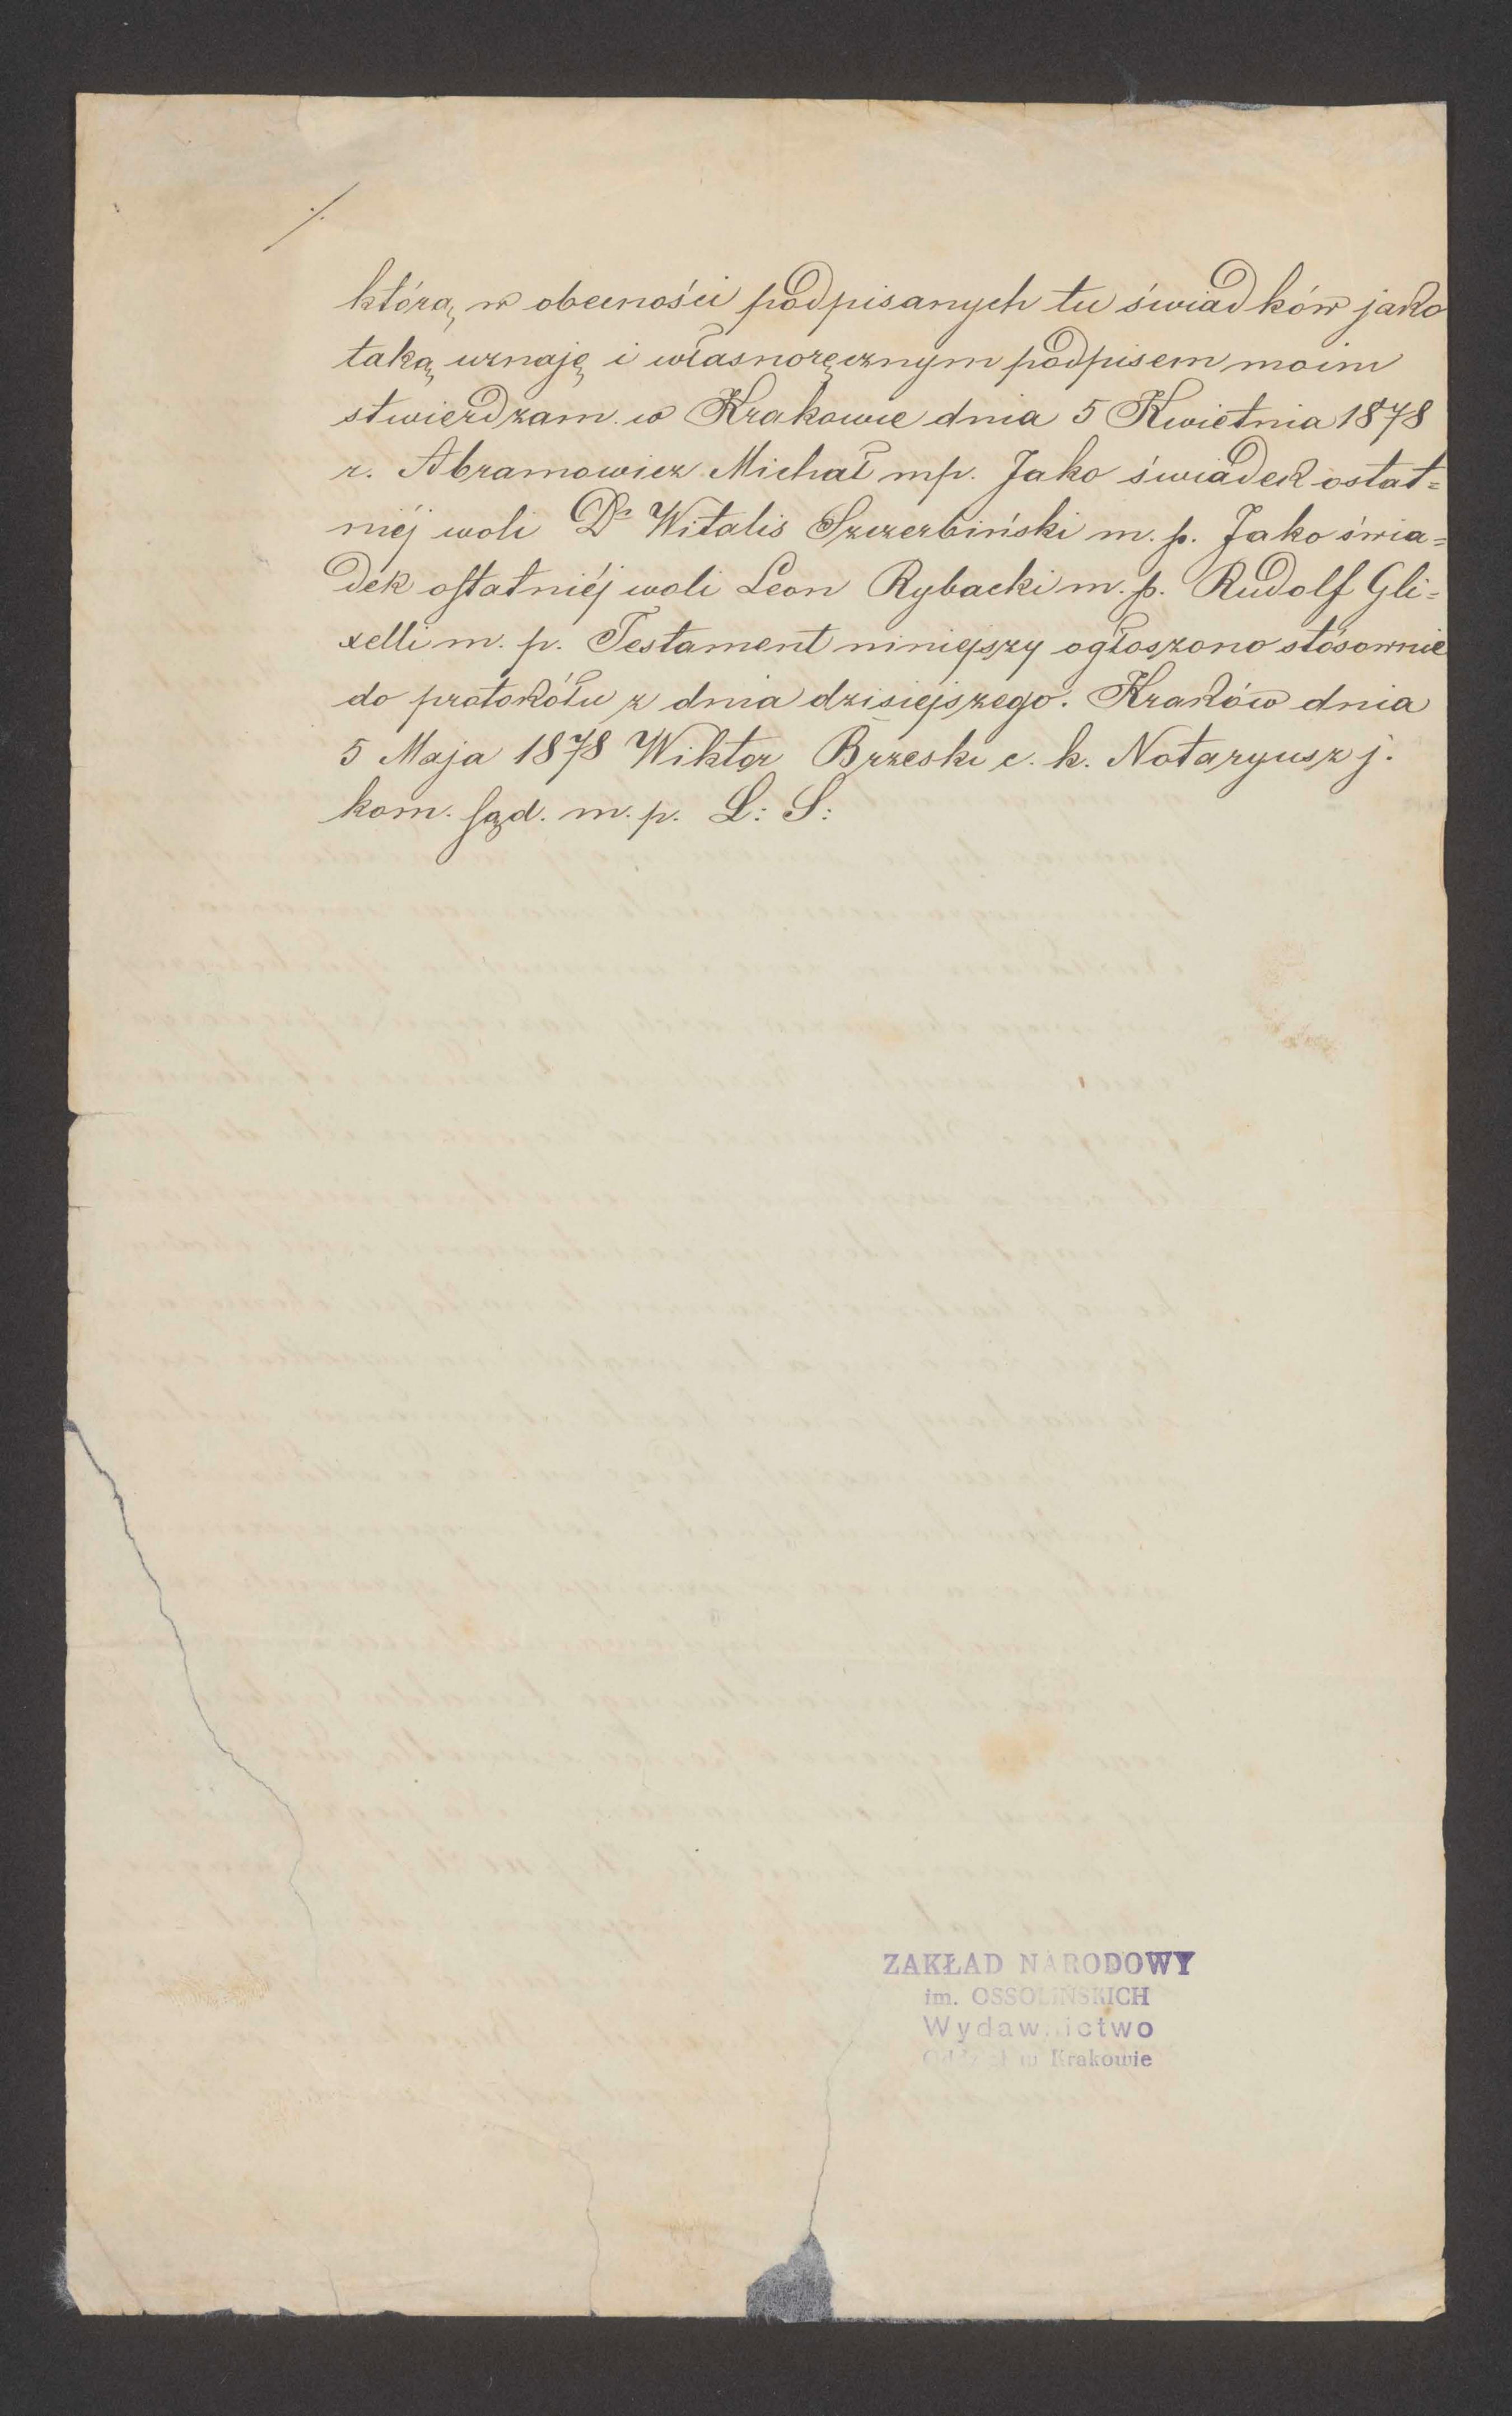 ./.
którą w obecności podpisanych tu świadków jako
taką uznaję i własnoręcznym podpisem moim
stwierdzam w Krakowie dnia 5 Kwietnia 1878
r. Abramowicz Michał mp. Jako świadek ostat=
niéj woli Dr Witalis Szczerbiński m. p. Jako świa=
dek ostatniéj woli Leon Rybacki m. p. Rudolf Gli=
xelli m. p. Testament niniejszy ogłoszono stósownie
do protokółu z dnia dzisiejszego. Kraków dnia
5 Maja 1878 Wiktor Brzeski c. k. Notaryusz j.
kom. sąd. m. p. L: S:
ZAKŁAD NARODOWY
im. OSSOLIŃSKICH
Wydawnictwo
Oddział w Krakowie